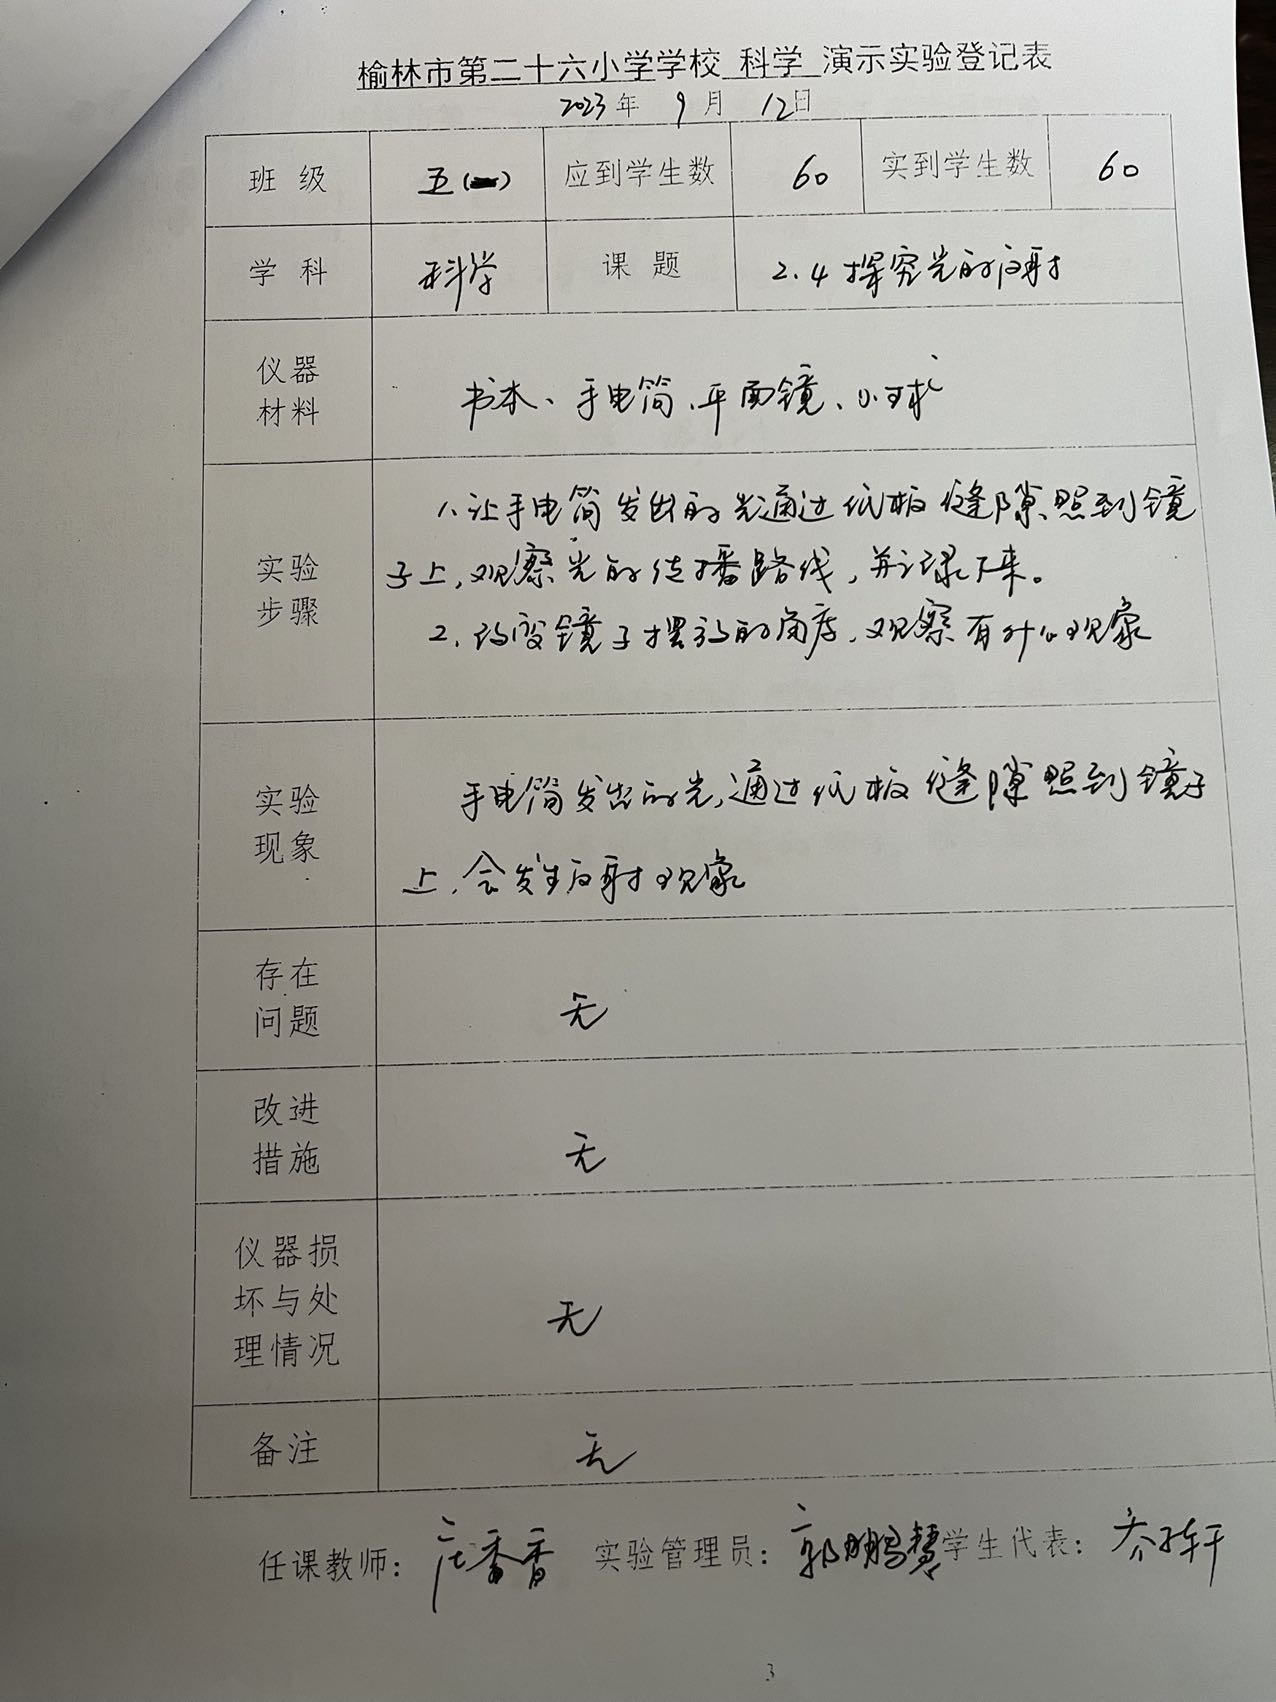 榆林市第二十六小学学校 科学 演示实验登记表
2023年 9月 12日
班 级 五(一) 应到学生数 60 实到学生数 60
学 科 科学 课 题 2.4探究光的反射
仪器
材料
书本、手电筒、平面镜、小球
实验
步骤
1、让手电筒发出的光通过纸板缝隙照到镜
子上,观察光的传播路线,并记录下来。
2、改变镜子摆放的角度,观察有什么现象
实验
现象
手电筒发出的光,通过纸板缝隙照到镜子
上,会发生反射现象
存在
问题
无
改进
措施
无
仪器损
坏与处
理情况
无
备注 无
任课教师: 庄香香 实验管理员: 郭鹏慧 学生代表: 乔轩
3